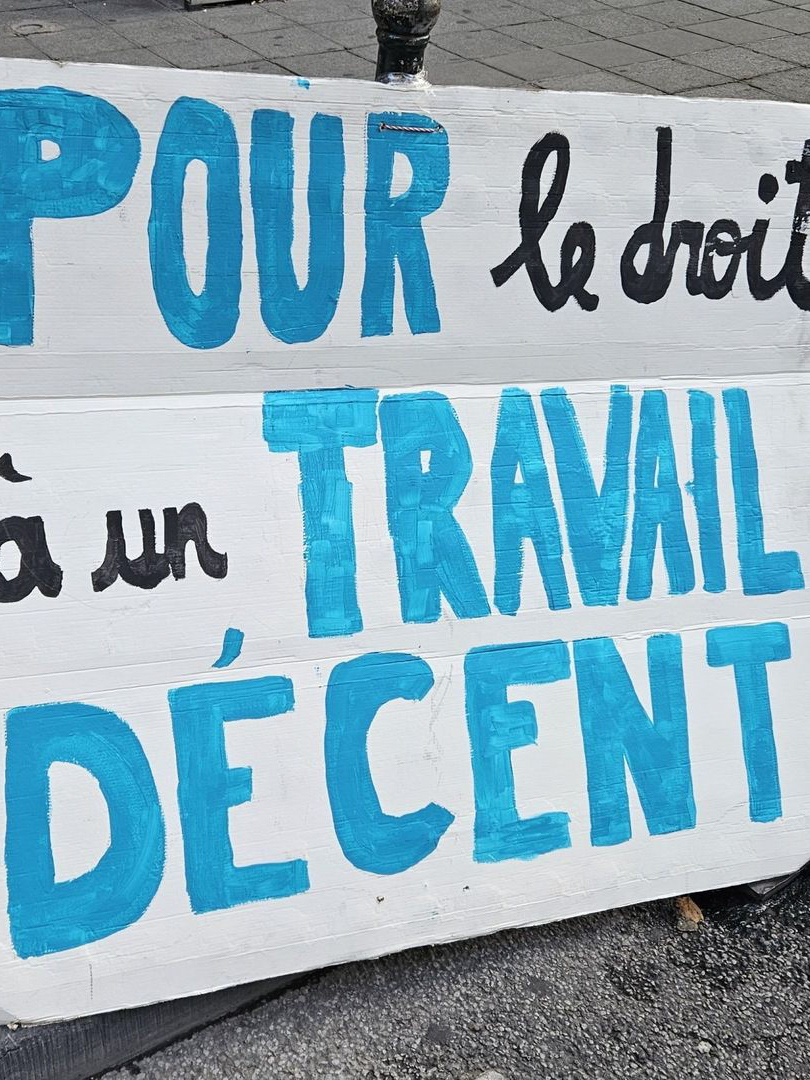 POUR le droit
à un TRAVAIL
DÉCENT